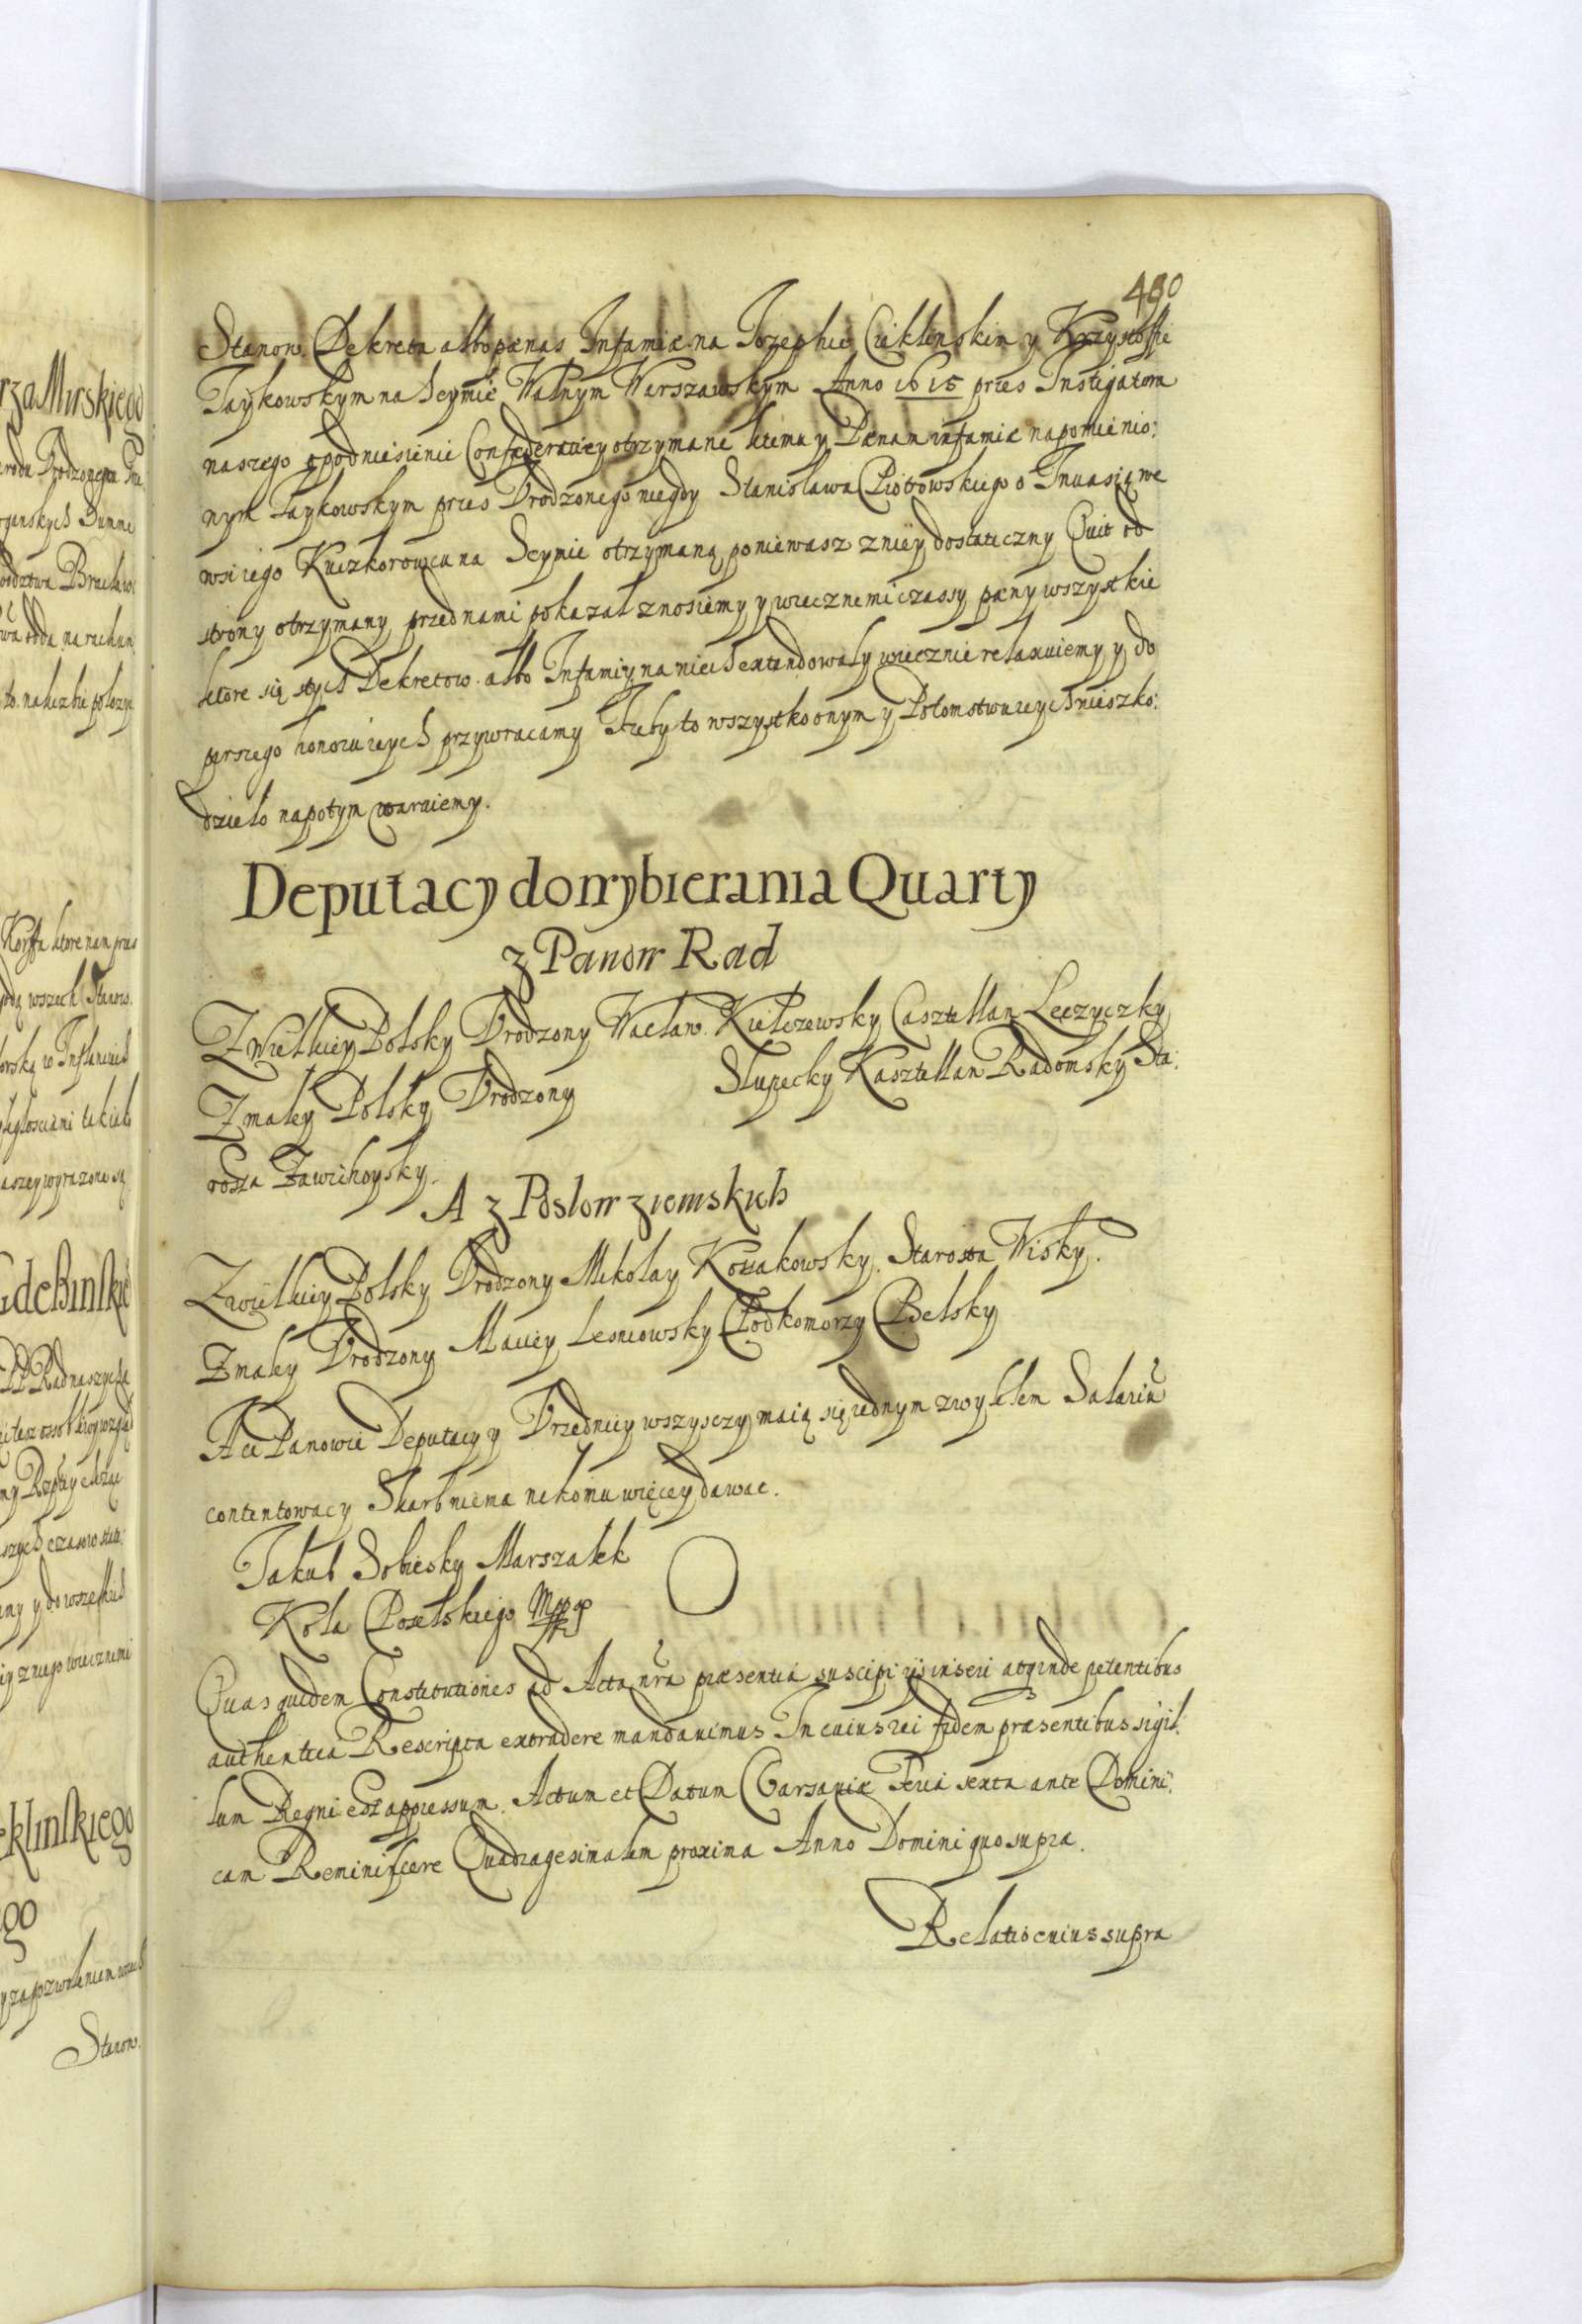 480
Stanow. Dekreta albo pænas Infamiæ na Jozephie Cieklinskim y Krzysztoffie
Jaykowskym na Seymie Walnym Warszawskym Anno 1615 przes Instigatora
naszego o podniesienie Confæderaciey otrzymane ktemu y Pænam infamiæ na pomienio:
nym Jaykowskym przes Vrodzonego niegdy Stanisława Piotrowskiego o Inuasią we
wsi iego Kuczkorowcu na Seymie otrzymaną poniewasz z niey dostateczny Quit od
strony otrzymany przed nami pokazał znosiemy y wiecznemi czassy pæny wszystkie
ktore się s tych Dekretow. albo Infamiy na nich extendowały wiecznie relaxuiemy y do
pirszego honoru ieych przywracamy Zeby to wszystko onym y Potomstwu ieych nieszko:
dzieło napotym waruiemy.
Deputacy do wybierania Quarty
z Panow Rad
Z Wielkiey Polsky Vrodzony Wacław. Kiełczewsky Casztellan Lęczyczky
Z małey Polsky Vrodzony Słupecky Kasztellan Radomsky Sta:
rosta Zawichoysky.
A z Posłow ziemskich
Z wielkiey Polsky Vrodzony Mikołay Kossakowsky. Starosta Wisky.
Z małey Vrodzony Maciey Lesniowsky Podkomorzy Belsky
A ci Panowie Deputacy y Vrzędnicy wszysczy maią się iednym zwykłem Salariũ
contentowac y Skarb niema nikomu więcey dawac.
Jakub Sobiesky Marszałek
Koła Poselskiego Mpp
Quas quidem Constitutiones ad Acta nr̃a præsentia suscipi ijs inseri atq; inde petentibus
authentica Rescripta extradere mandauimus In cuius rei fidem præsentibus sigil:
lum Regni est appressum. Actum et Datum Varsauiæ Feria sexta ante Domini:
cam Reminiscere Quadragesimalem proxima Anno Domini quo supra.
Relatio cuius supra